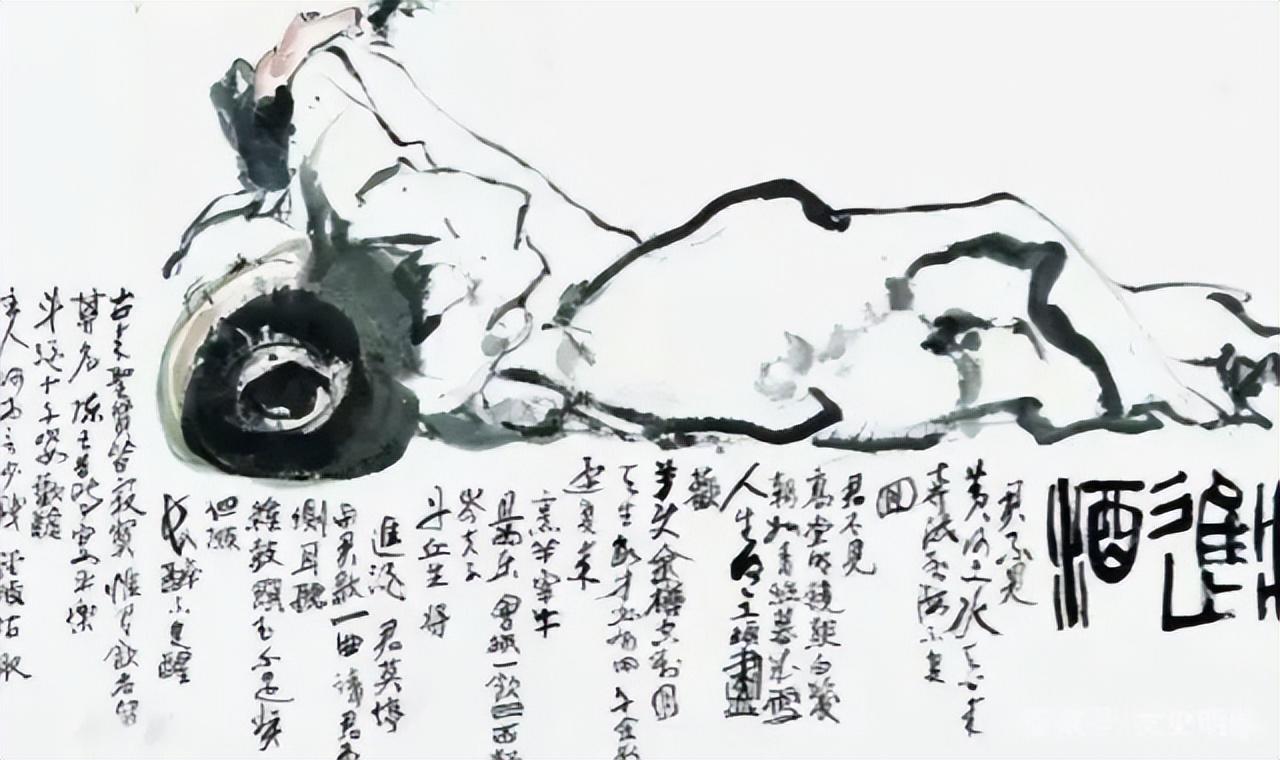 進酒
君不見
黃河之水天上來
奔流到海不復
回
君不見
高堂明鏡悲白髮
朝如青絲暮成雪
人生得意須盡
歡
莫使金樽空對月
天生我才必有用千金散
還復來
烹羊宰牛
且為樂會須一飲三百杯
岑夫子
丹丘生將
進酒君莫停
與君歌一曲請君為
側耳聽
鐘鼓饌玉不足貴
但願
長醉不復醒
古來聖賢皆寂寞惟有飲者留
其名陳王昔時宴平樂
斗酒十千恣歡謔
主人何為言少錢徑須沽取